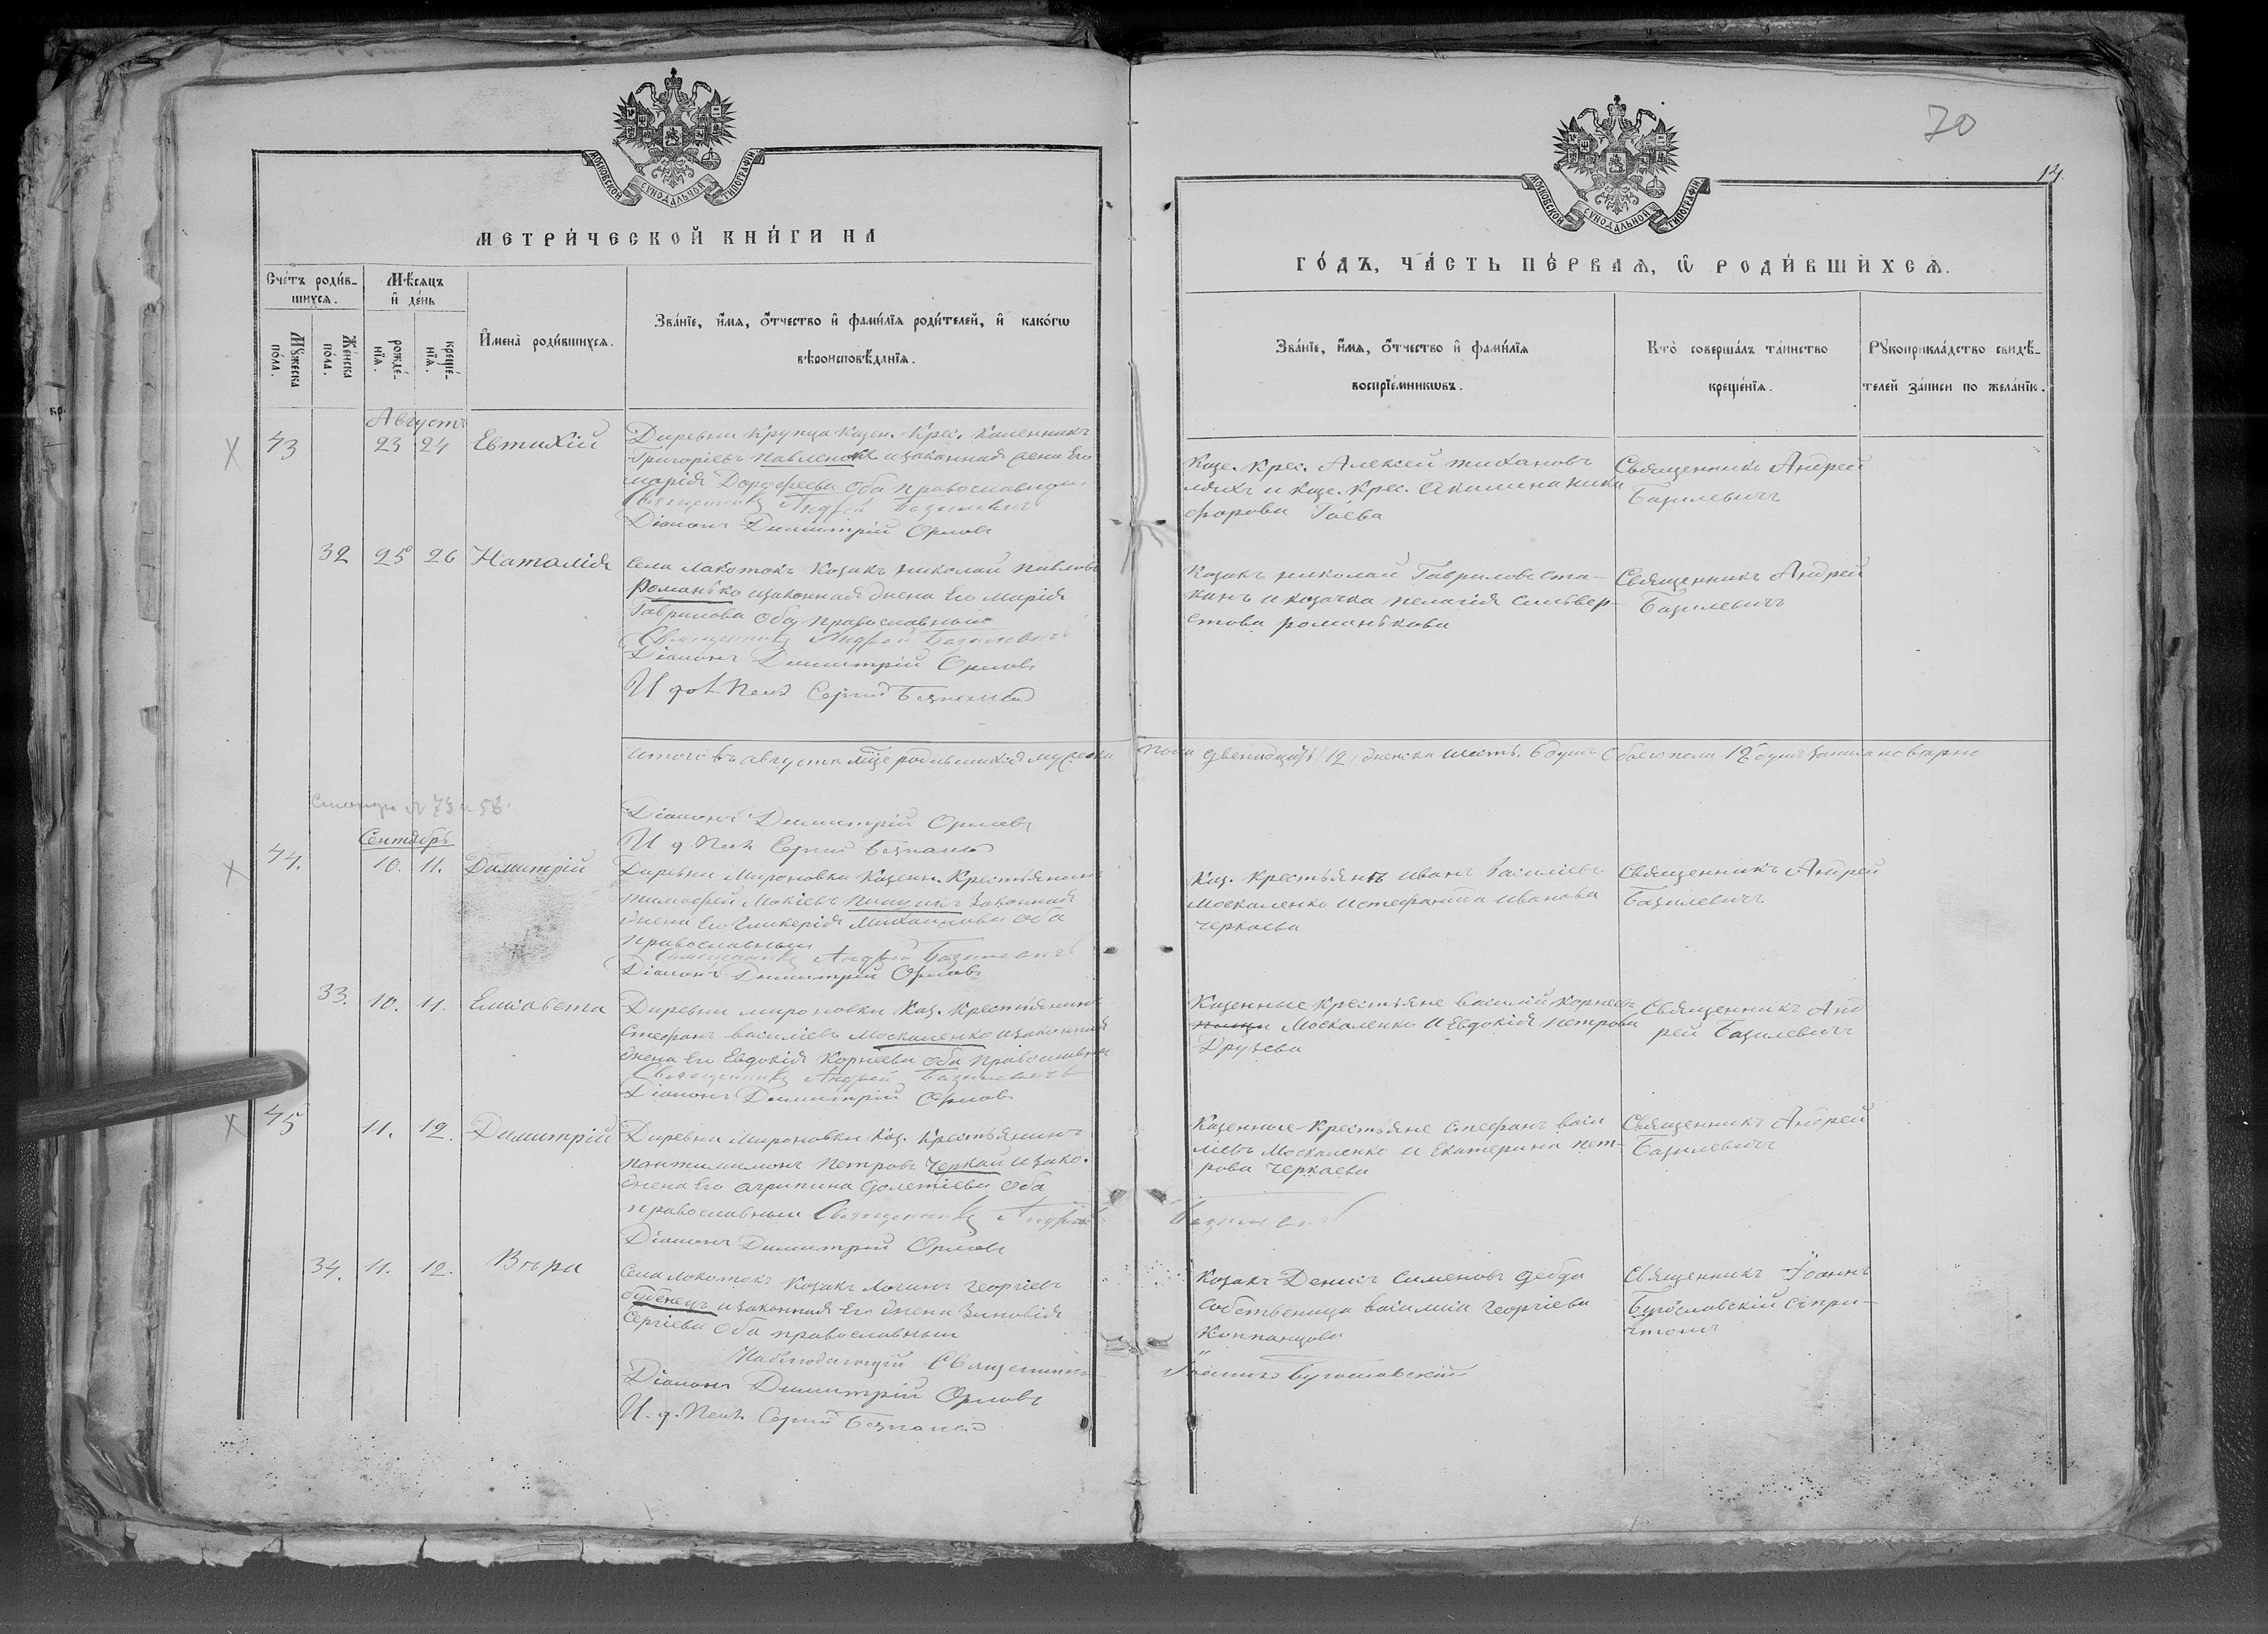 МОСКОВСКОЙ СѴНОДАЛЬНОЙ ТИПОГРАФІИ
МЕТРИ́ЧЕСКОЙ КНИ́ГИ НА
Сче́тъ роди́в-
шихся.
Мѣ́сяцъ
и҆ де́нь
Мꙋ́жеска
по́ла.
Же́нска
по́ла.
рожде́-
нїя.
креще́-
нїя.
И҆мена̀ роди́вшихся.
Зва́нїе, и҆́мя, ѻ҆́тчество и҆ фами́лїя роди́телей, и҆ како́гѡ
вѣроисповѣ́данїя.
Августъ
43 23 24 Евтихій
Деревни Крупца Казен. Крес. Каленникъ
Григоріевъ Павленокъ и законная жена Его
Марія Дорофеева Оба православные
Священникъ Андрей Базилевичъ
Діаконъ Димитрій Орловъ
32 25 26 Наталія
Села Локотокъ Козакъ Николай Павловъ
Романько и законная жена Его Марія
Гаврилова Оба православные
Священникъ Андрей Базилевичъ
Діаконъ Димитрій Орловъ
И д Псал Сергій
Итого въ августе м̃це родившихся мужеска
№ 73 и 58.
Діаконъ Димитрій Орловъ
И д Псал Сергій
Сентябрь
44. 10. 11. Димитрій
Деревни Мироновки Казенн. Крестьянинъ
Тимофей Мокіевъ законная
жена Его Гликерія Михаилова Оба
православные
Священникъ Андрей Базилевичъ
Діаконъ Димитрій Орловъ
33. 10. 11. Елисавета
Деревни Мироновки Каз. Крестьянинъ
Стефанъ Василіевъ Москаленко и законная
жена Его Евдокія Корнеева Оба православные
Священникъ Андрей Базилевичъ
Діаконъ Димитрій Орловъ
45 11. 12. Димитрій
Деревни Мироновки Каз. Крестьянинъ
Пантилимонъ Петровъ Черкай и зако.
жена Его Агрипина Оба
православные Священникъ Андрей
Діаконъ Димитрій Орловъ
34. 11. 12. Вѣра
Села Локотокъ Козакъ Логинъ Георгіевъ
Бубенецъ и законная Его жена Зиновія
Сергіева Оба православные
Наблюдающій Священникъ
Діаконъ Димитрій Орловъ
И. д. Псал. Сергій
70
14.
МОСКОВСКОЙ СѴНОДАЛЬНОЙ ТИПОГРАФІИ
ГО́ДЪ, ЧА́СТЬ ПЕ́РВАЯ, Ѡ҆ РОДИ́ВШИХСЯ.
Зва́нїе, и҆́мя, ѻ҆́тчество и҆ фами́лїя
воспрїе́мникѡвъ.
Кто̀ соверша́лъ та́инство
креще́нїя.
Рꙋкоприкла́дство свидѣ́-
телей за́писи по жела́нїю.
Казе. Крес. Алексей Тихановъ
Ляхъ и Казе. Крес. Акилина Ники
форова Гаева
Священникъ Андрей
Базилевичъ
Козакъ Николай Гавриловъ Ста-
кинъ и козачка Пелагія Сильвер-
стова Романькова
Священникъ Андрей
Базилевичъ
пола двенадцать (12) женска шесть. 6 душъ Обоего пола 18 душъ
Каз. Крестьянъ Иванъ Василіевъ
Москаленко и Стефанида Иванова
Черкаева
Священникъ Андрей
Базилевичъ
Казенные Крестьяне Василій Корнеев-
Москаленко и Евдокія Петрова
Друзева
Священникъ Анд
рей Базилевичъ
Казенные Крестьяне Стефанъ Васи
ліевъ Москаленко и Екатерина Пет-
рова Черкаева
Священникъ Андрей
Базилевичъ
Базилевичъ
Козакъ Денисъ Сименовъ Дейда
Собственица Василиса Георгіева
Копанцова
Священникъ Іоаннъ
Бугославскій съ при-
чтомъ
Іоаннъ Бугославскій